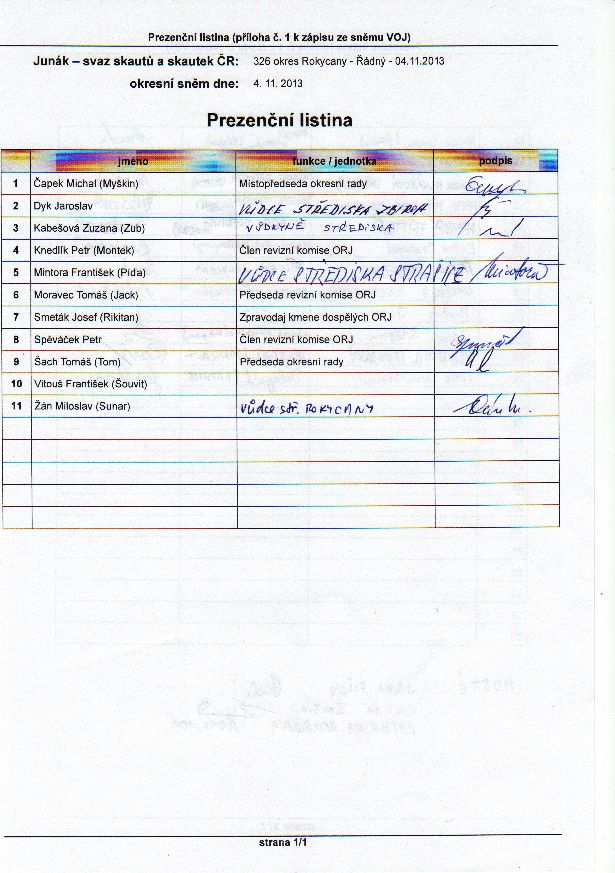 Prezenční listina (příloha č. 1 k zápisu ze sněmu VOJ)
Junák – svaz skautů a skautek ČR: 326 okres Rokycany - Řádný - 04.11.2013
okresní sněm dne: 4. 11. 2013
Prezenční listina
jméno funkce / jednotka podpis
1 Čapek Michal (Myškin) Místopředseda okresní rady
2 Dyk Jaroslav VŮDCE STŘEDISKA ZBIROH
3 Kabešová Zuzana (Zub) VŮDKYNĚ STŘEDISKA
4 Knedlík Petr (Montek) Člen revizní komise ORJ
5 Mintora František (Pída) VŮDCE STŘEDISKA STRAŠICE Mintora
6 Moravec Tomáš (Jack) Předseda revizní komise ORJ
7 Smeták Josef (Rikitan) Zpravodaj kmene dospělých ORJ
8 Spěváček Petr Člen revizní komise ORJ
9 Šach Tomáš (Tom) Předseda okresní rady
10 Vitouš František (Šouvit)
11 Žán Miloslav (Sunar) VŮDCE STŘ. ROKYCANY
strana 1/1